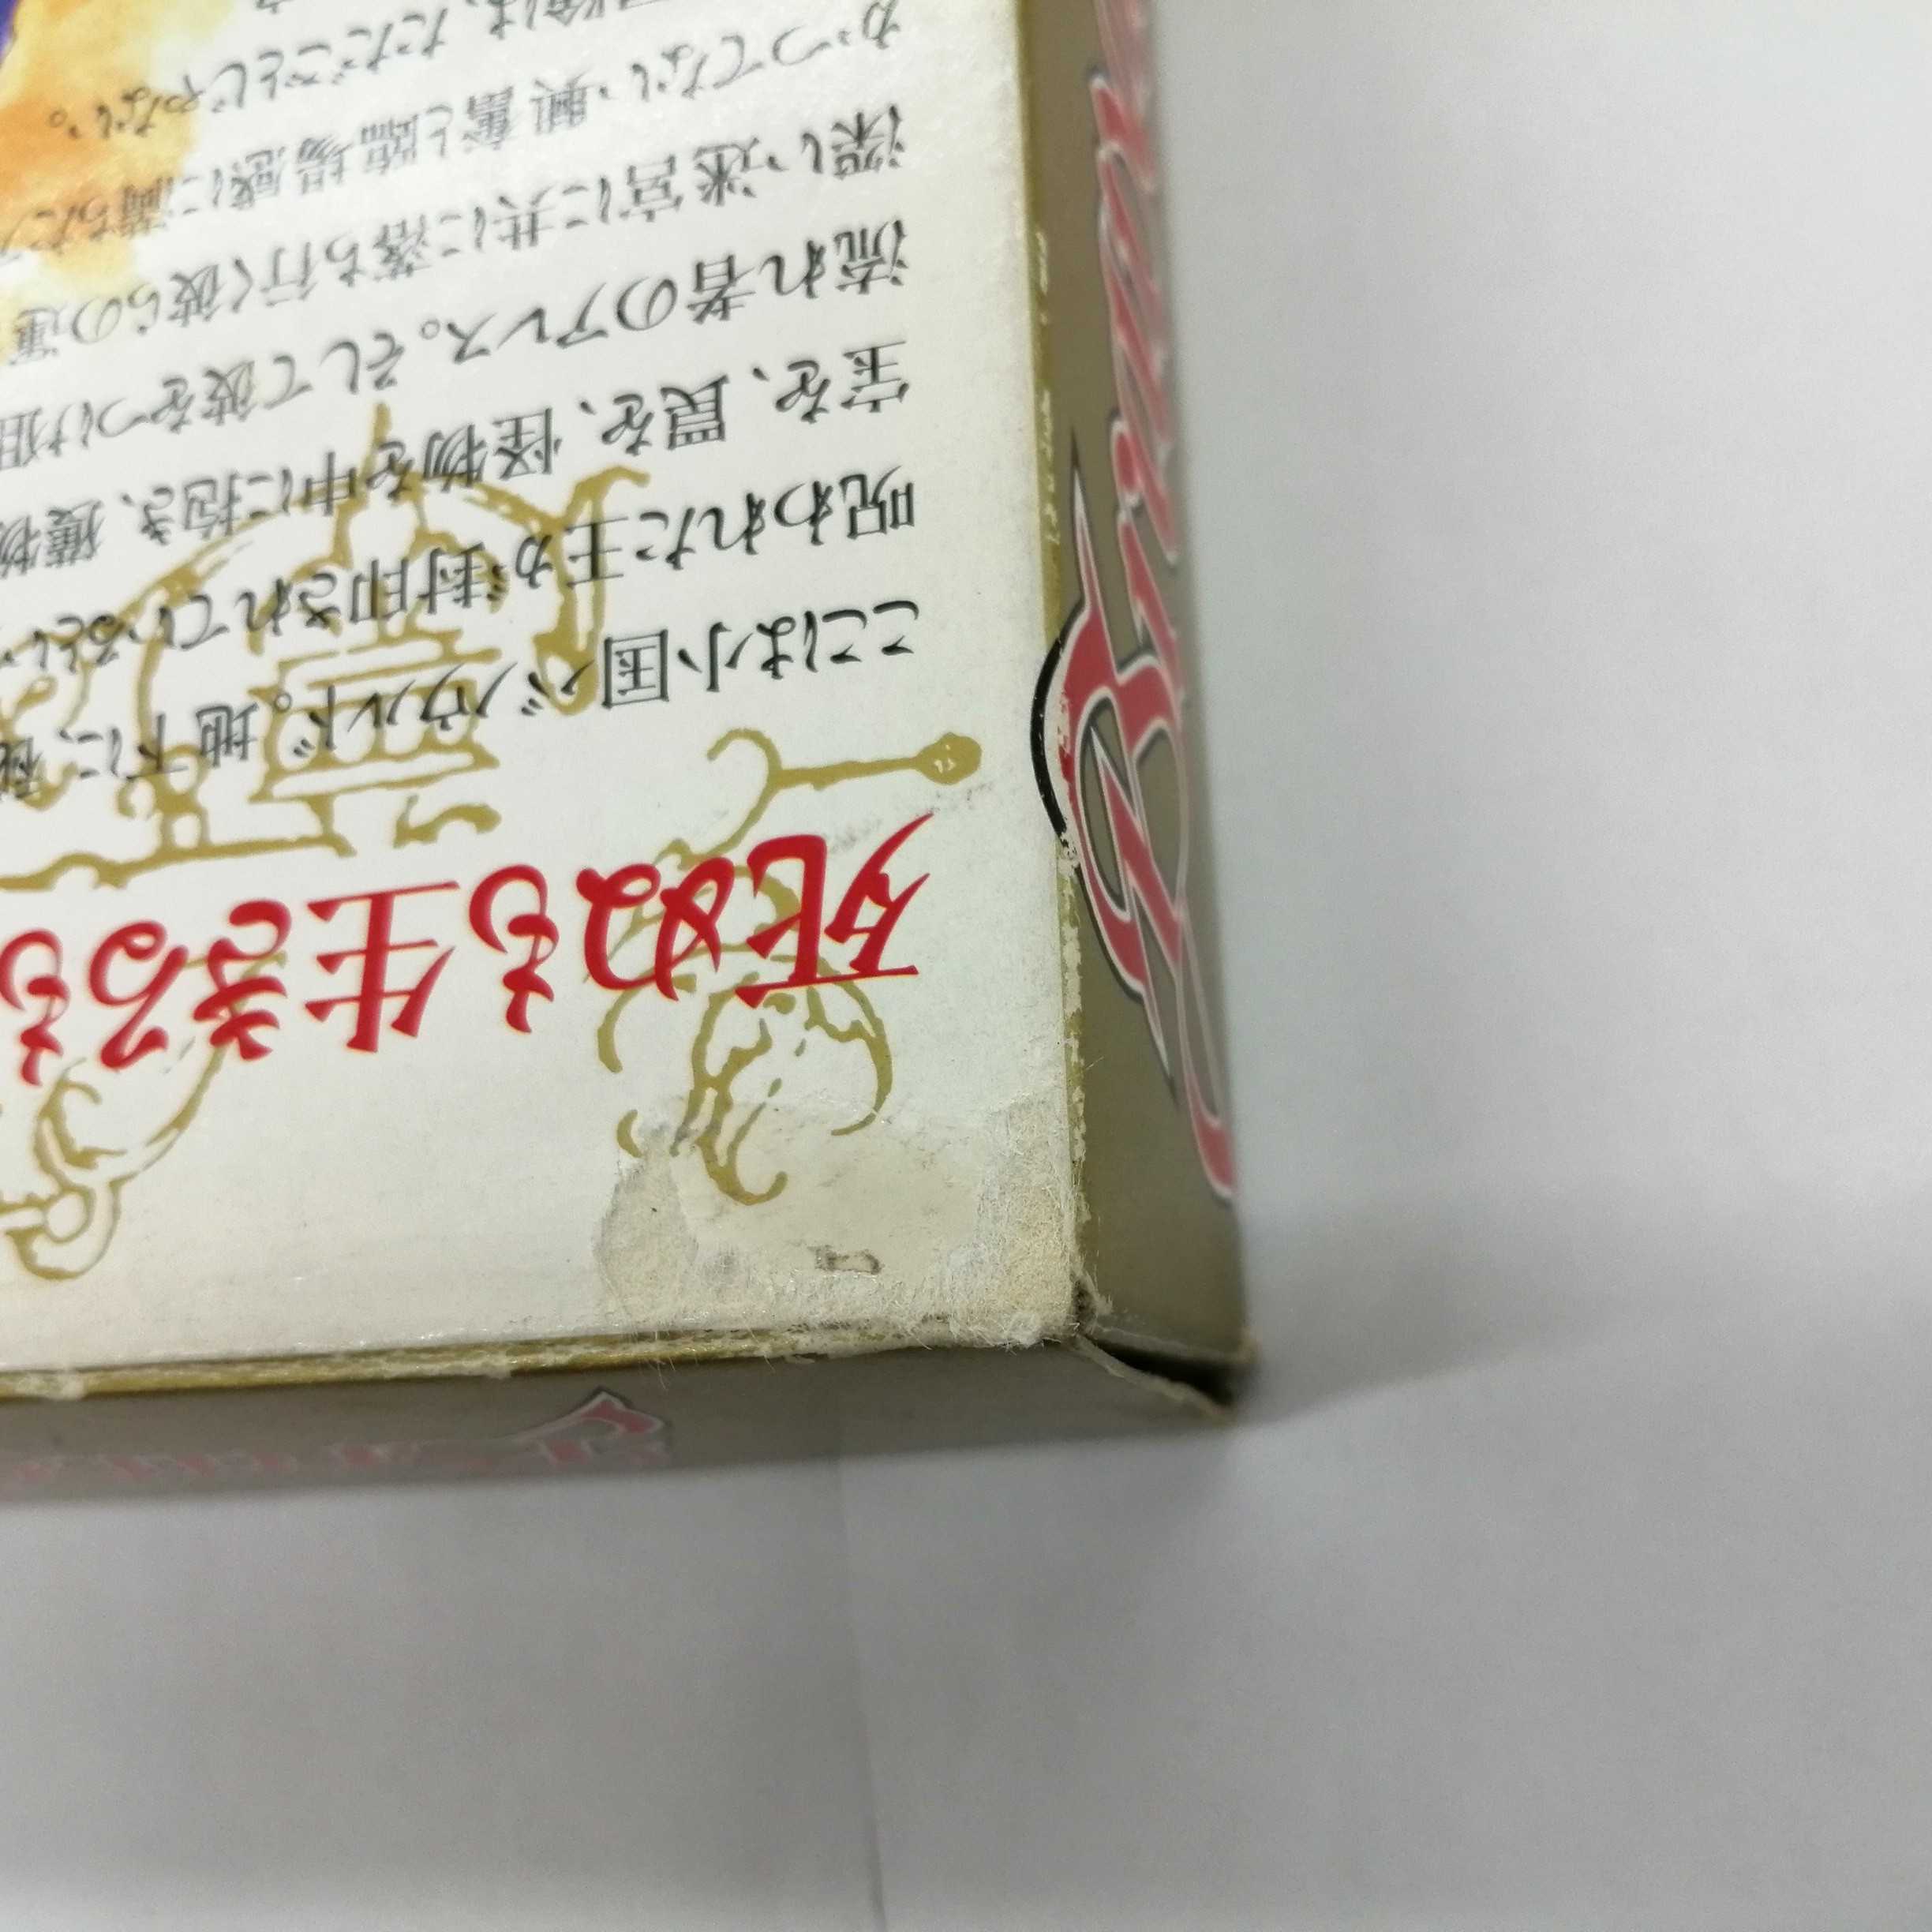 死ぬも生きるも
ここは小国バノウルド。地下に、
呪われた王が封印されているとい
宝を、罠を、怪物を中に抱き、獲物
流れ者のアレス。そして彼をつけ狙
深い迷宮に共に落ち行く彼らの運
かつてない興奮と臨場感に満ちた
は、ただごとじゃない。
Bran